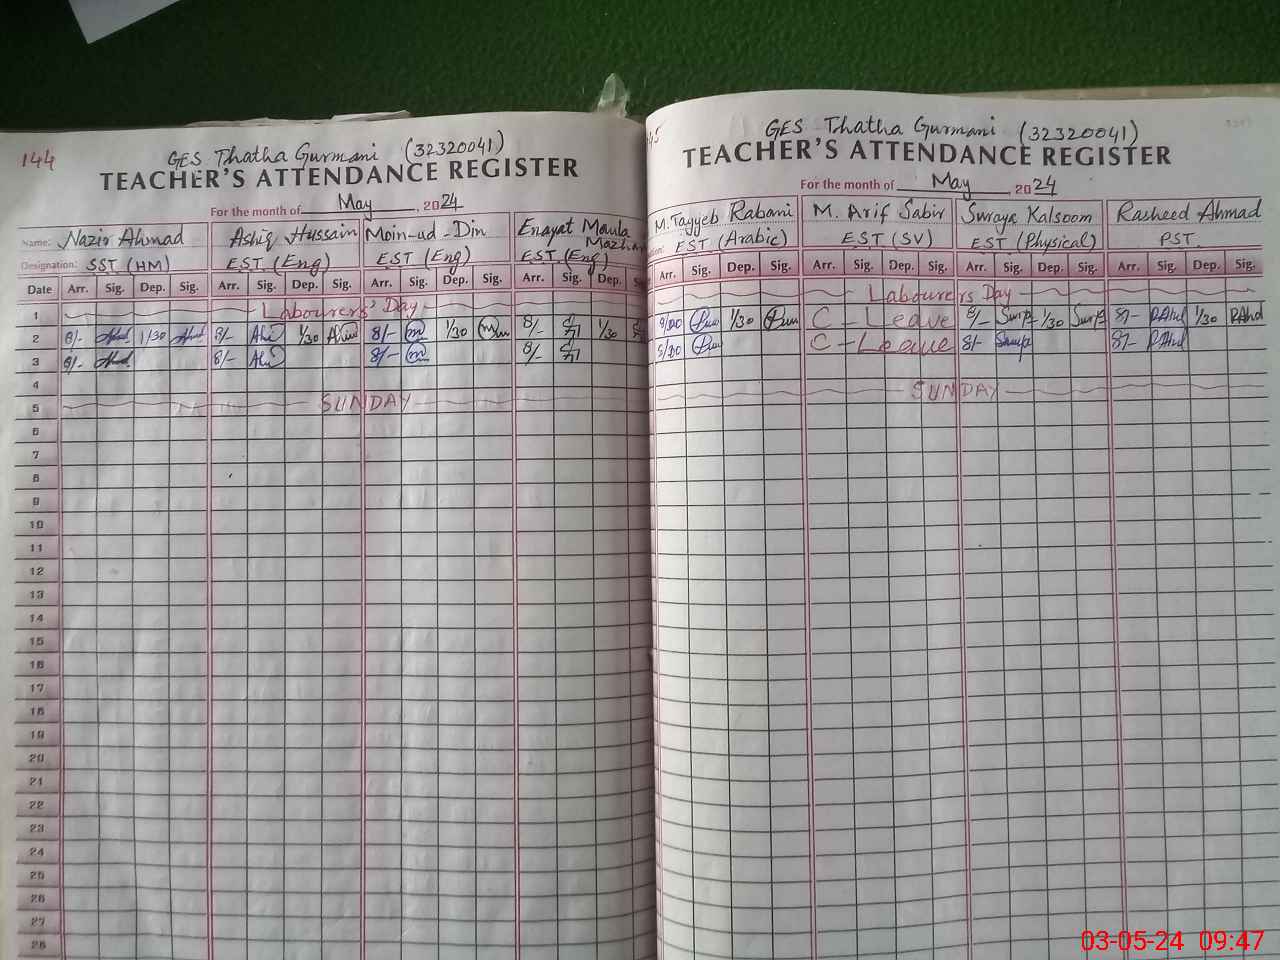 144
GES Thatha Gurmani (32320041)
TEACHER'S ATTENDANCE REGISTER
For the month of May, 2024
Name: Nazir Ahmad Ashiq Hussain Moin-ud-Din Enayat Maula Mazhar
Designation: SST (HM) EST (Eng) EST (Eng) EST (Eng)
Date Arr. Sig. Dep. Sig. Arr. Sig. Dep. Sig. Arr. Sig. Dep. Sig. Arr. Sig. Dep.
1 Labourers' Day
2 8/- 1/30 8/- 1/30 8/- 1/30 8/- 1/30
3 8/- 8/- 8/- 8/-
4
5 SUNDAY
6
7
8
9
10
11
12
13
14
15
16
17
18
19
20
21
22
23
24
25
26
27
28
GES Thatha Gurmani (32320041)
TEACHER'S ATTENDANCE REGISTER
For the month of May, 2024
M. Tayyeb Rabani M. Arif Sabir Suraya Kalsoom Rasheed Ahmad
EST (Arabic) EST (SV) EST (Physical) PST.
Arr. Sig. Dep. Sig. Arr. Sig. Dep. Sig. Arr. Sig. Dep. Sig. Arr. Sig. Dep. Sig.
Labourers Day
1/30 C-Leave 8/- 1/30 8/- RAhd 1/30 RAhd
C-Leave 8/- 8/- RAhd
SUNDAY
03-05-24 09:47